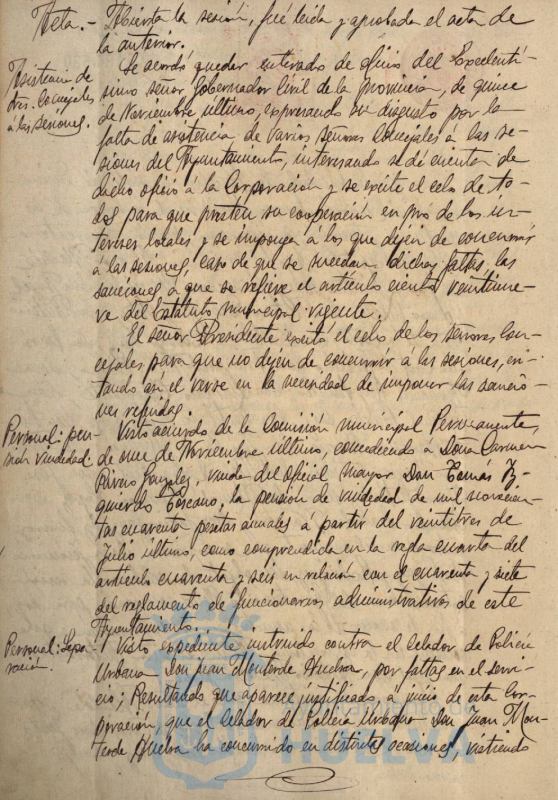 Acta.- Abierta la sesión, fué leida y aprobada el acta de
la anterior.
Asistencia de
Sres. Concejales
á las sesiones.
Se acordó quedar enterado de oficio del Excelentí-
simo señor Gobernador Civil de la provincia, de quince
de Noviembre último, expresando su disgusto por la
falta de asistencia de varios señores Concejales á las se-
siones del Ayuntamiento, interesando se dé cuenta de
dicho oficio á la Corporación y se excite el celo de to-
dos para que presten su cooperación en pró de los in-
tereses locales y se imponga á los que dejen de concurrir
á las sesiones, caso de que se sucedan dichas faltas, las
sanciones á que se refiere el artículo ciento veintinue-
ve del Estatuto municipal vigente.
El señor Presidente excitó el celo de los señores Con-
cejales para que no dejen de concurrir á las sesiones, evi-
tando asi el verse en la necesidad de imponer las sancio-
nes referidas.
Personal: pen-
sión viudedad.
Visto acuerdo de la Comisión municipal Permanente,
de once de Noviembre último, concediendo á Doña Carmen
Rivero González, viuda del oficial mayor Don Tomás Iz-
quierdo Toscano, la pensión de viudedad de mil novecien-
tas cuarenta pesetas anuales á partir del veintitres de
Julio último, como comprendida en la regla cuarta del
artículo cuarenta y seis en relación con el cuarenta y siete
del reglamento de funcionarios administrativos de este
Ayuntamiento.
Personal: Sepa-
ración.
Visto expediente instruido contra el celador de Policía
Urbana Don Juan Monterde Huelva, por faltas en el servi-
cio; Resultando que aparece justificado, a juicio de esta Cor-
poración, que el celador de Policía Urbana Don Juan Mon-
terde Huelva ha concurrido en distintas ocasiones, vistiendo
HUELVA